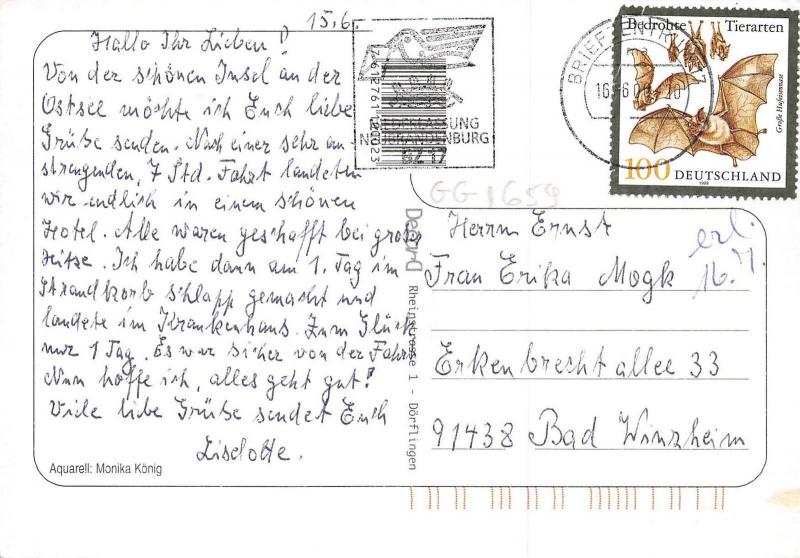 15.6.
Hallo Ihr Lieben!
Von der schönen Insel an der
Ostsee möchte ich Euch liebe
Grüße senden. Nach einer sehr an-
strengenden, 7 Std. Fahrt landeten
wir endlich in einem schönen
Hotel. Alle waren geschafft bei großer
Hitze. Ich habe dann am 1. Tag im
Strandkorb schlapp gemacht und
landete im Krankenhaus. Zum Glück
nur 1 Tag. Es war sicher von der Fahrt.
Nun hoffe ich, alles geht gut!
Viele liebe Grüße sendet Euch
Liselotte.
Aquarell: Monika König
NIEDERLASSUNG
NEUBRANDENBURG
BZ 17
BRIEFZENTRUM
Bedrohte Tierarten
Große Hufeisennase
100 DEUTSCHLAND
1999
GG1659
Decard Rheinstrasse 1 - Dörflingen
Herrn Ernst
Frau Erika Mogk
erl.
16.7.
Erkenbrechtallee 33
91438 Bad Winzheim